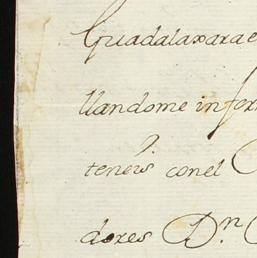 Guadalaxara e
llandome infor
teneis conel
dores Dn.